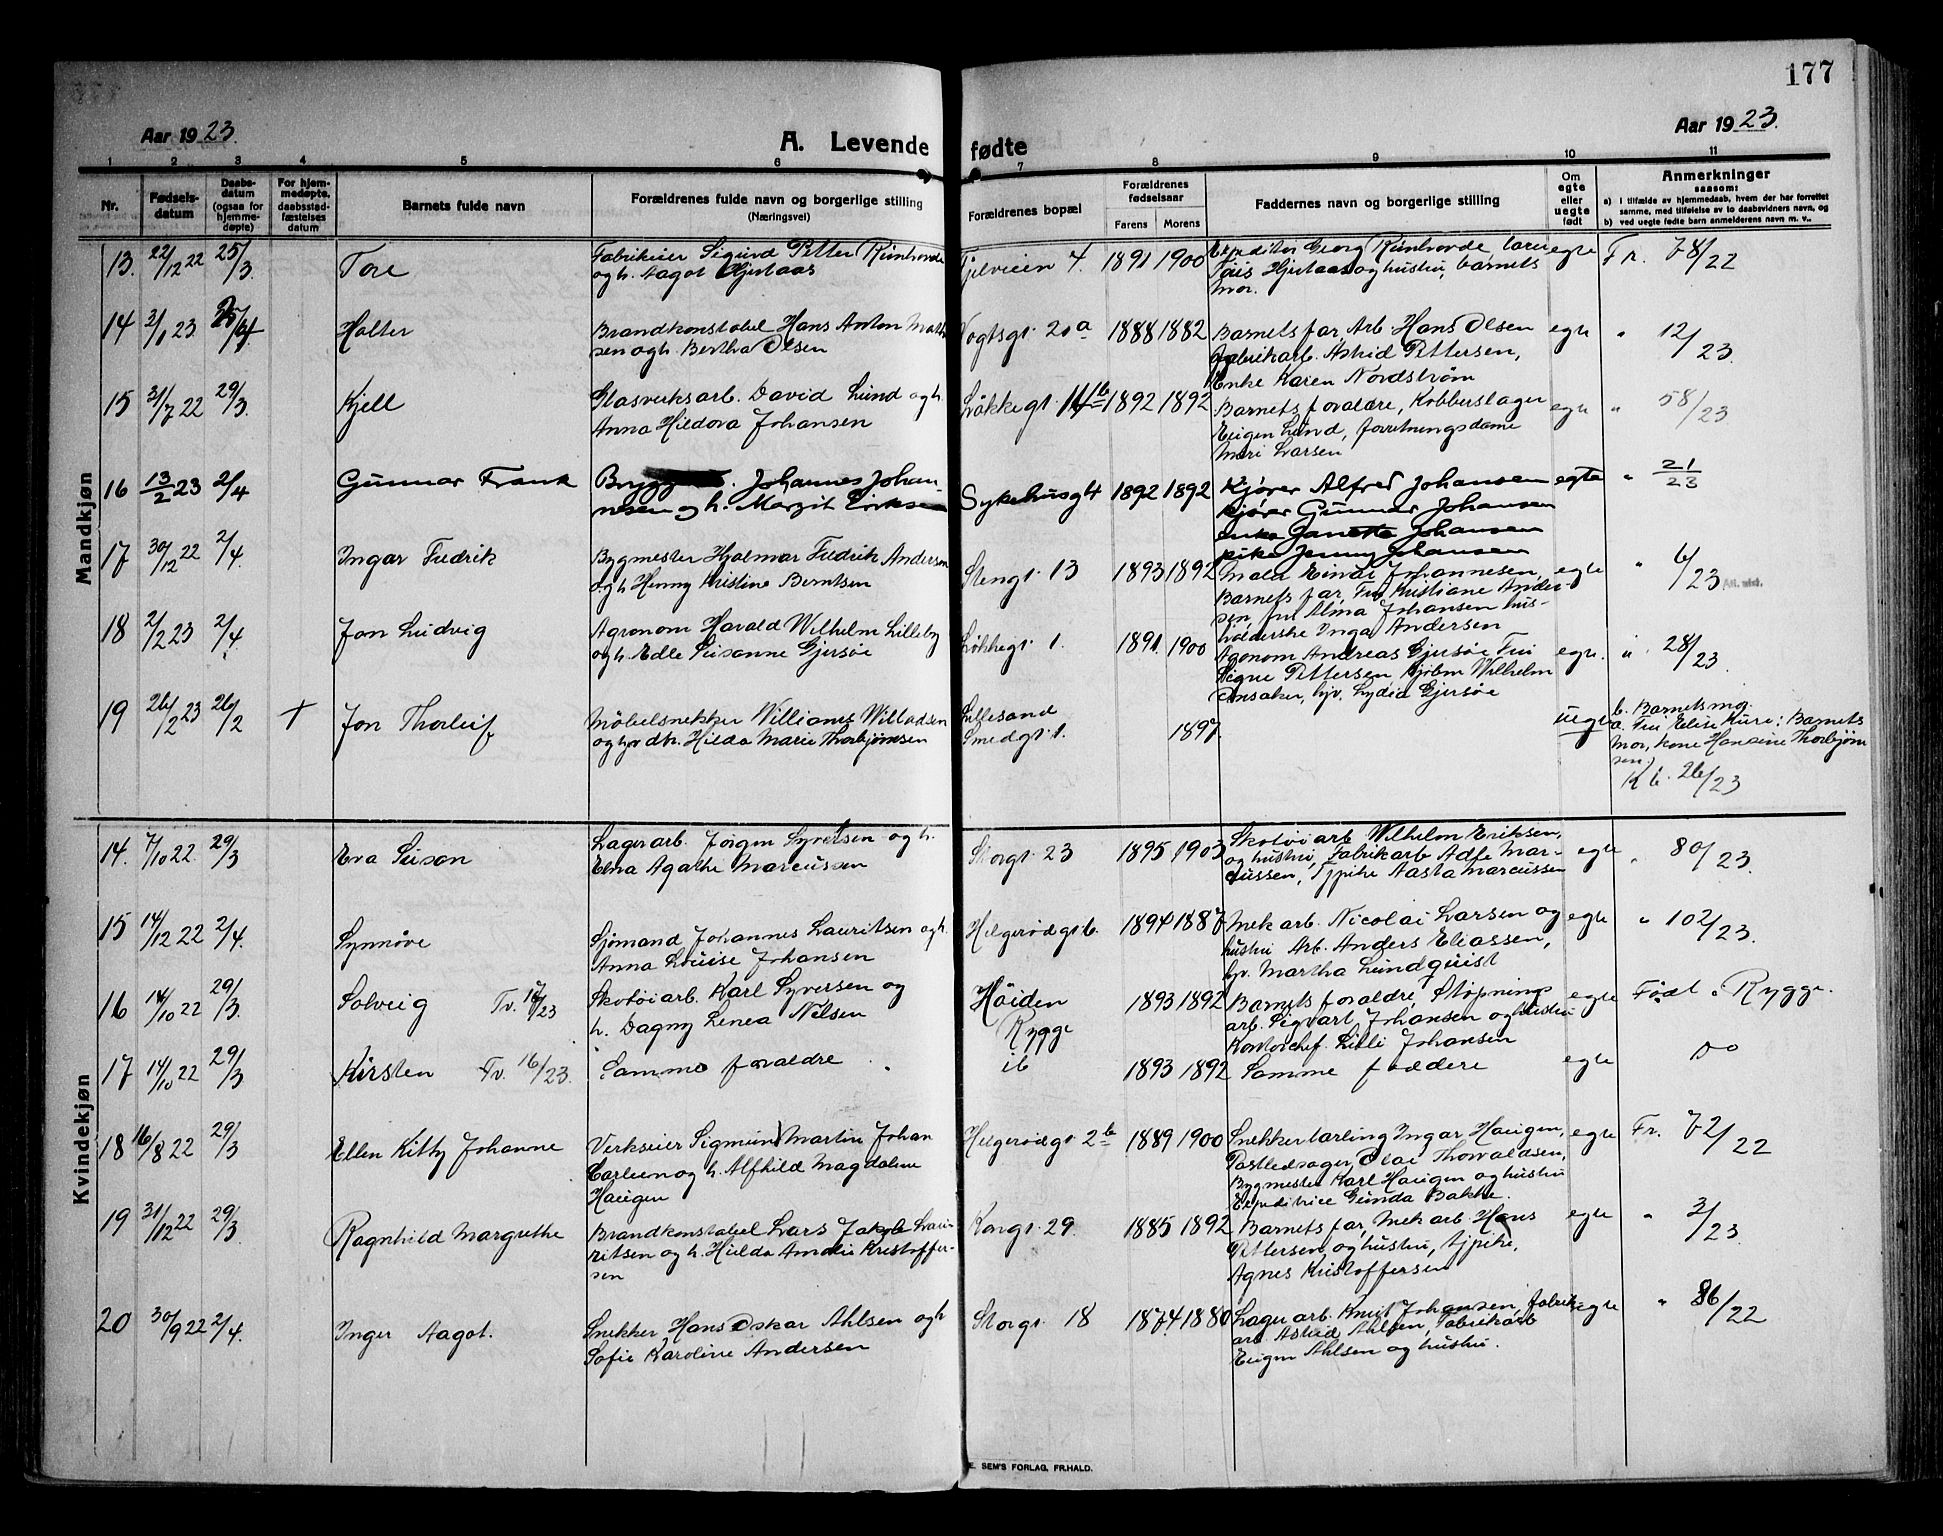 177
Aar 1923.
A. Levende fødte
Aar 1923.
1 2 3 4 5 6 7 8 9 10 11
Nr.
Fødsels-
datum
Daabs-
datum
(ogsaa for
hjemme-
døpte)
For hjem-
medøpte,
daabsstad-
fæstelses
datum
Barnets fulde navn
Forældrenes fulde navn og borgerlige stilling
(Næringsvei)
Forældrenes bopæl
Forældrenes
fødselsaar
Farens Morens
Faddernes navn og borgerlige stilling
Om
egte
eller
uegte
født
Anmerkninger
saasom:
a) i tilfælde av hjemmedaab, hvem der har forrettet
samme, med tilføielse av to daabsvidners navn, og
b) ved uegte fødte barn anmelderens navn m. v..
Mandkjøn
13. 22/12 22 25/3. Tore
Fabrikeier Sigurd Petter Rimhovde
og h. Aagot Hjertaas
4. 1891 1900
Expeditør Georg Rimhovde, lærer
Hjertaas og hustru, barnets
mor.
egte Fr. 78/22
14 2/1 23 Halter
Brandkonstabel Hans Anton
sen og h. Bertha Olsen
Vogtsgt. 20a 1888 1882
Barnets far, Arb. Hans Olsen
fabrikarb. Astrid Pettersen,
Enke Karen Nordstrøm
egte " 12/23.
15 31/7 22 29/3. Kjell
Glasverksarb. David Lund og h.
Anna Hildora Johansen
Løkkegt. 1892 1892
Barnets forældre, Kobberslager
Eugen Lund, forretningsdame
Mari Larsen
egte " 58/23
16 13/2 23 2/4 Gunnar Frank
Johannes Johan-
nesen og h. Margit Eriksen
Sykehusgt 4 1892 1892
Kjører Alfred Johansen
kjører Gunnar Johansen
enke Janette Johansen
pike Jenny Johansen
egte " 21/23
17 30/12 22 2/4. Ingar Fredrik
Bygmester Hjalmar Fredrik Andersen
og h Henny Kristine Berntsen
Stengt. 13 1893 1892
Maler Einar Johannesen,
Barnets far, Fru Kristiane Ander-
sen, fru Alma Johansen hus-
holderske Inga Andersen
egte " 6/23 Att. utst.
18 2/2 23 2/4. Jan Ludvig
Agronom Harald Wilhelm Lilleby
og h. Edle Susanne Gjersøe
Løkkegt. 1. 1891. 1900
Agronom Andreas Gjersøe Fru
Signe Pettersen, Kjøbm Wilhelm
Onsaker, hjv. Lydia Gjersøe
egte. " 28/23.
19 26/2 23 26/2 + Jan Thorleif
Møbelsnekker William Willadsen
og hjv dtr. Hilda Marie Thorbjørnsen
Lillesand
Smedgt. 1. 1897.
uegte
b. Barnets mor.
a. Fru Elise Kure: Barnets
Mor, kone Hansine Thorbjørn
sen.
K b. 26/23
Kvindekjøn
14. 7/10 22. 29/3 Eva Susan
Lagerarb. Jørgen Syvertsen og h.
Elna Agathe Marcussen
Storgt. 23 1895 1903
Skotøiarb Wilhelm Eriksen,
og hustru, Fabrikarb Adle Mar-
cussen, Tjpike Aasta Marcussen
egte " 80/23.
15 14/12 22 2/4. Synnøve
Sjømand Johannes Lauritsen og h.
Anna Louise Johansen
Helgerødgt 6. 1894 1887
Mek arb. Nicolai Larsen og
hustru Arb. Anders Eliassen,
hv. Martha Lundquist
egte " 102/23.
16 14/10 22 29/3. Solveig Tv. 17/23
Skotøiarb. Karl Syversen og
h. Dagny Linea Nilsen
Høiden
Rygge
1893 1892
Barnets forældre, Støpnings
arb. Sigvart Johansen og hustru
Kontorchef. Lilli Johansen
egte Født i Rygge.
17 14/10 22 29/3 Kirsten Tv. 16/23.
Samme forældre
ib 1893 1892 Samme faddere egte Do
18 16/8 22 29/3 Ellen Kitty Johanne
Verkseier Sigmund Martin Johan
Carlsen og h. Alfhild Magdalene
Haugen
Helgerødgt 2b 1889 1900
Snekkerlærling Ingar Haugen,
Postledsager, Olai Thorvaldsen,
Bygmester Karl Haugen og hustru
Expeditrice Gunda Bakke.
egte Fr. 72/22
19 31/12 22 29/3. Ragnhild Margrethe
Brandkonstabel Lars Jakob Lau-
ritsen og h. Hilda Amalie Kristoffer-
sen
Kongt. 29. 1885 1892
Barnets far, Mek arb Hans
Pettersen og hustru, tjpike,
Agnes Kristoffersen
egte " 3/23.
20 30/9 22 2/4. Inger Aagot.
Snekker Hans Oskar Ahlsen og h
Sofie Karoline Andersen
Storgt 18 1874 1880
Lagerarb. Knut Johansen, fabrik-
arb Astrid Ahlsen, Fabrikarb
Eugen Ahlsen og hustru.
egte " 86/22
E. SEM'S FORLAG, FR.HALD.